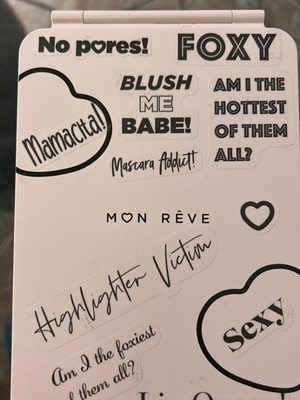 No pores!
FOXY
BLUSH
ME
BABE!
AM I THE
HOTTEST
OF THEM
ALL?
Mamacita!
Mascara Addict!
MON RÊVE
Highlighter Victim
Sexy
Am I the foxiest
of them all?